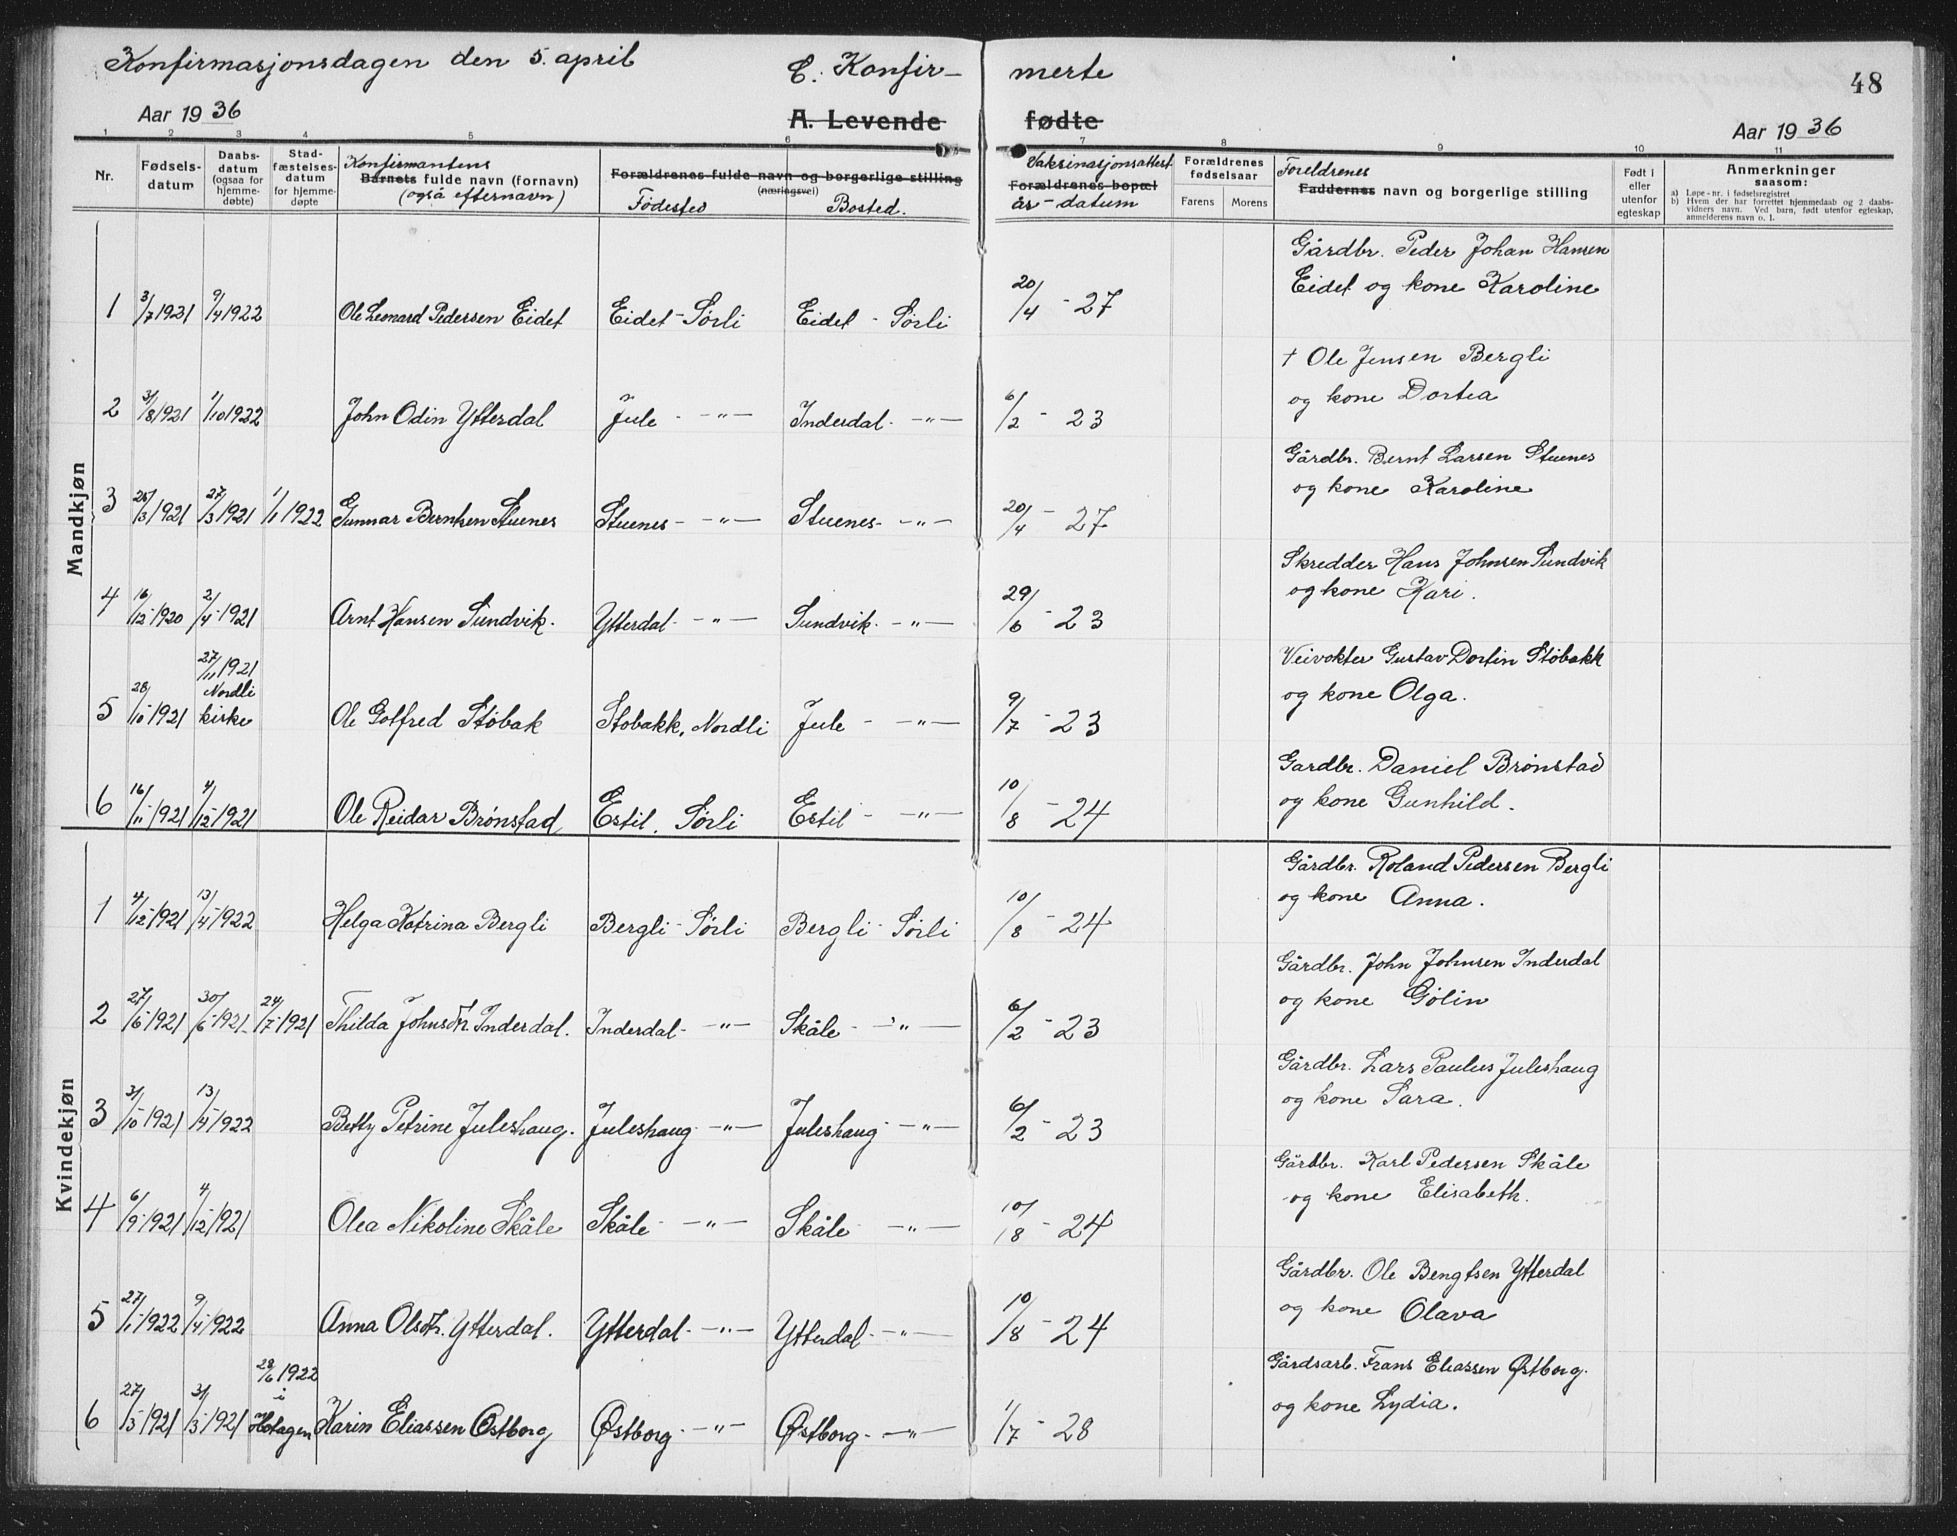 Konfirmasjonsdagen den 5. april
C. Konfir- merte
48
Aar 1936
A. Levende fødte
Aar 1936
1 2 3 4 5 6 7 8 9 10 11
Nr.
Fødsels-
datum
Daabs-
datum
(ogsaa for
hjemme-
døbte)
Stad-
fæstelses-
datum
for hjemme-
døpte
Konfirmantens
Barnets fulde navn (fornavn)
(også efternavn)
Forældrenes fulde navn og borgerlige stilling
(næringsvei)
Fødested
Bosted.
Vaksinasjonsattest
Forældrenes bopæl
år-datum
Forældrenes
fødselsaar
Farens
Morens
Foreldrenes
Faddernes navn og borgerlige stilling
Født i
eller
utenfor
egteskap
Anmerkninger
saasom:
a) Løpe-nr. i fødselsregistret
b) Hvem der har forrettet hjemmedaab og 2 daabs-
vidners navn. Ved barn, født utenfor egteskap,
anmelderens navn o. l.
Mandkjøn
Gårdbr. Peder Johan Hansen
Eidet og kone Karoline
1 3/7 1921 9/4 1922 Ole Leonard Pedersen Eidet Eidet - Sørli Eidet - Sørli 20/4 - 27
† Ole Jensen Bergli
og kone Dortea
2 31/8 1921 1/10 1922 John Odin Ytterdal Jule - -"- Inderdal. -"- 6/2 - 23
Gårdbr. Bernt Larsen Stuenes
og kone Karoline
3 25/3 1921 27/3 1921 1/1 1922 Gunnar Berntsen Stuenes Stuenes - -"- Stuenes - -"- 20/4 - 27
Skredder Hans Johnsen Sundvik
og kone Kari.
4 16/12 1920 2/4 1921 Arnt Hansen Sundvik. Ytterdal - -"- Sundvik. -"- 29/6 - 23
27/11 1921
Nordli
kirke
Veivokter Gustav Dortin Støbakk
og kone Olga.
5 28/10 1921 Ole Golfred Støbak Støbakk, Nordli Jule - -"- 9/7 - 23
Gardbr. Daniel Brønstad
og kone Gunhild.
6 16/11 1921 4/12 1921 Ole Reidar Brønstad Estil. Sørli Estil - -"- 10/8 - 24
Kvindekjøn
Gårdbr. Roland Pedersen Bergli
og kone Anna.
1 4/12 1921 13/4 1922 Helga Katrina Bergli Bergli - Sørli Bergli - Sørli 10/8 - 24
Gårdbr. John Johnsen Inderdal
og kone Gølin
2 27/6 1921 30/6 1921 24/7 1921 Thilda Johnsdtr. Inderdal. Inderdal - -"- Skåle - -"- 6/2 - 23
Gårdbr. Lars Paulus Juleshaug
og kone Sara.
3 31/10 1921 13/4 1922 Betty Petrine Juleshaug. Juleshaug -"- Juleshaug -"- 6/2 - 23
Gårdbr. Karl Pedersen Skåle
og kone Elisabeth.
4 6/9 1921 4/12 1921 Olea Nikoline Skåle Skåle - -"- Skåle - -"- 10/8 - 24
Gårdbr. Ole Bengtsen Ytterdal
og kone Olava
5 27/1 1922 9/4 1922 Anna Olsdtr. Ytterdal. Ytterdal - -"- Ytterdal - -"- 10/8 - 24
28/6 1922
i
Hotagen
Gårdsarb. Frans Eliassen Østborg.
og kone Lydia.
6 27/3 1921 31/3 1921 Karin Eliassen Østborg Østborg - -"- Østborg - -"- 1/7 - 28